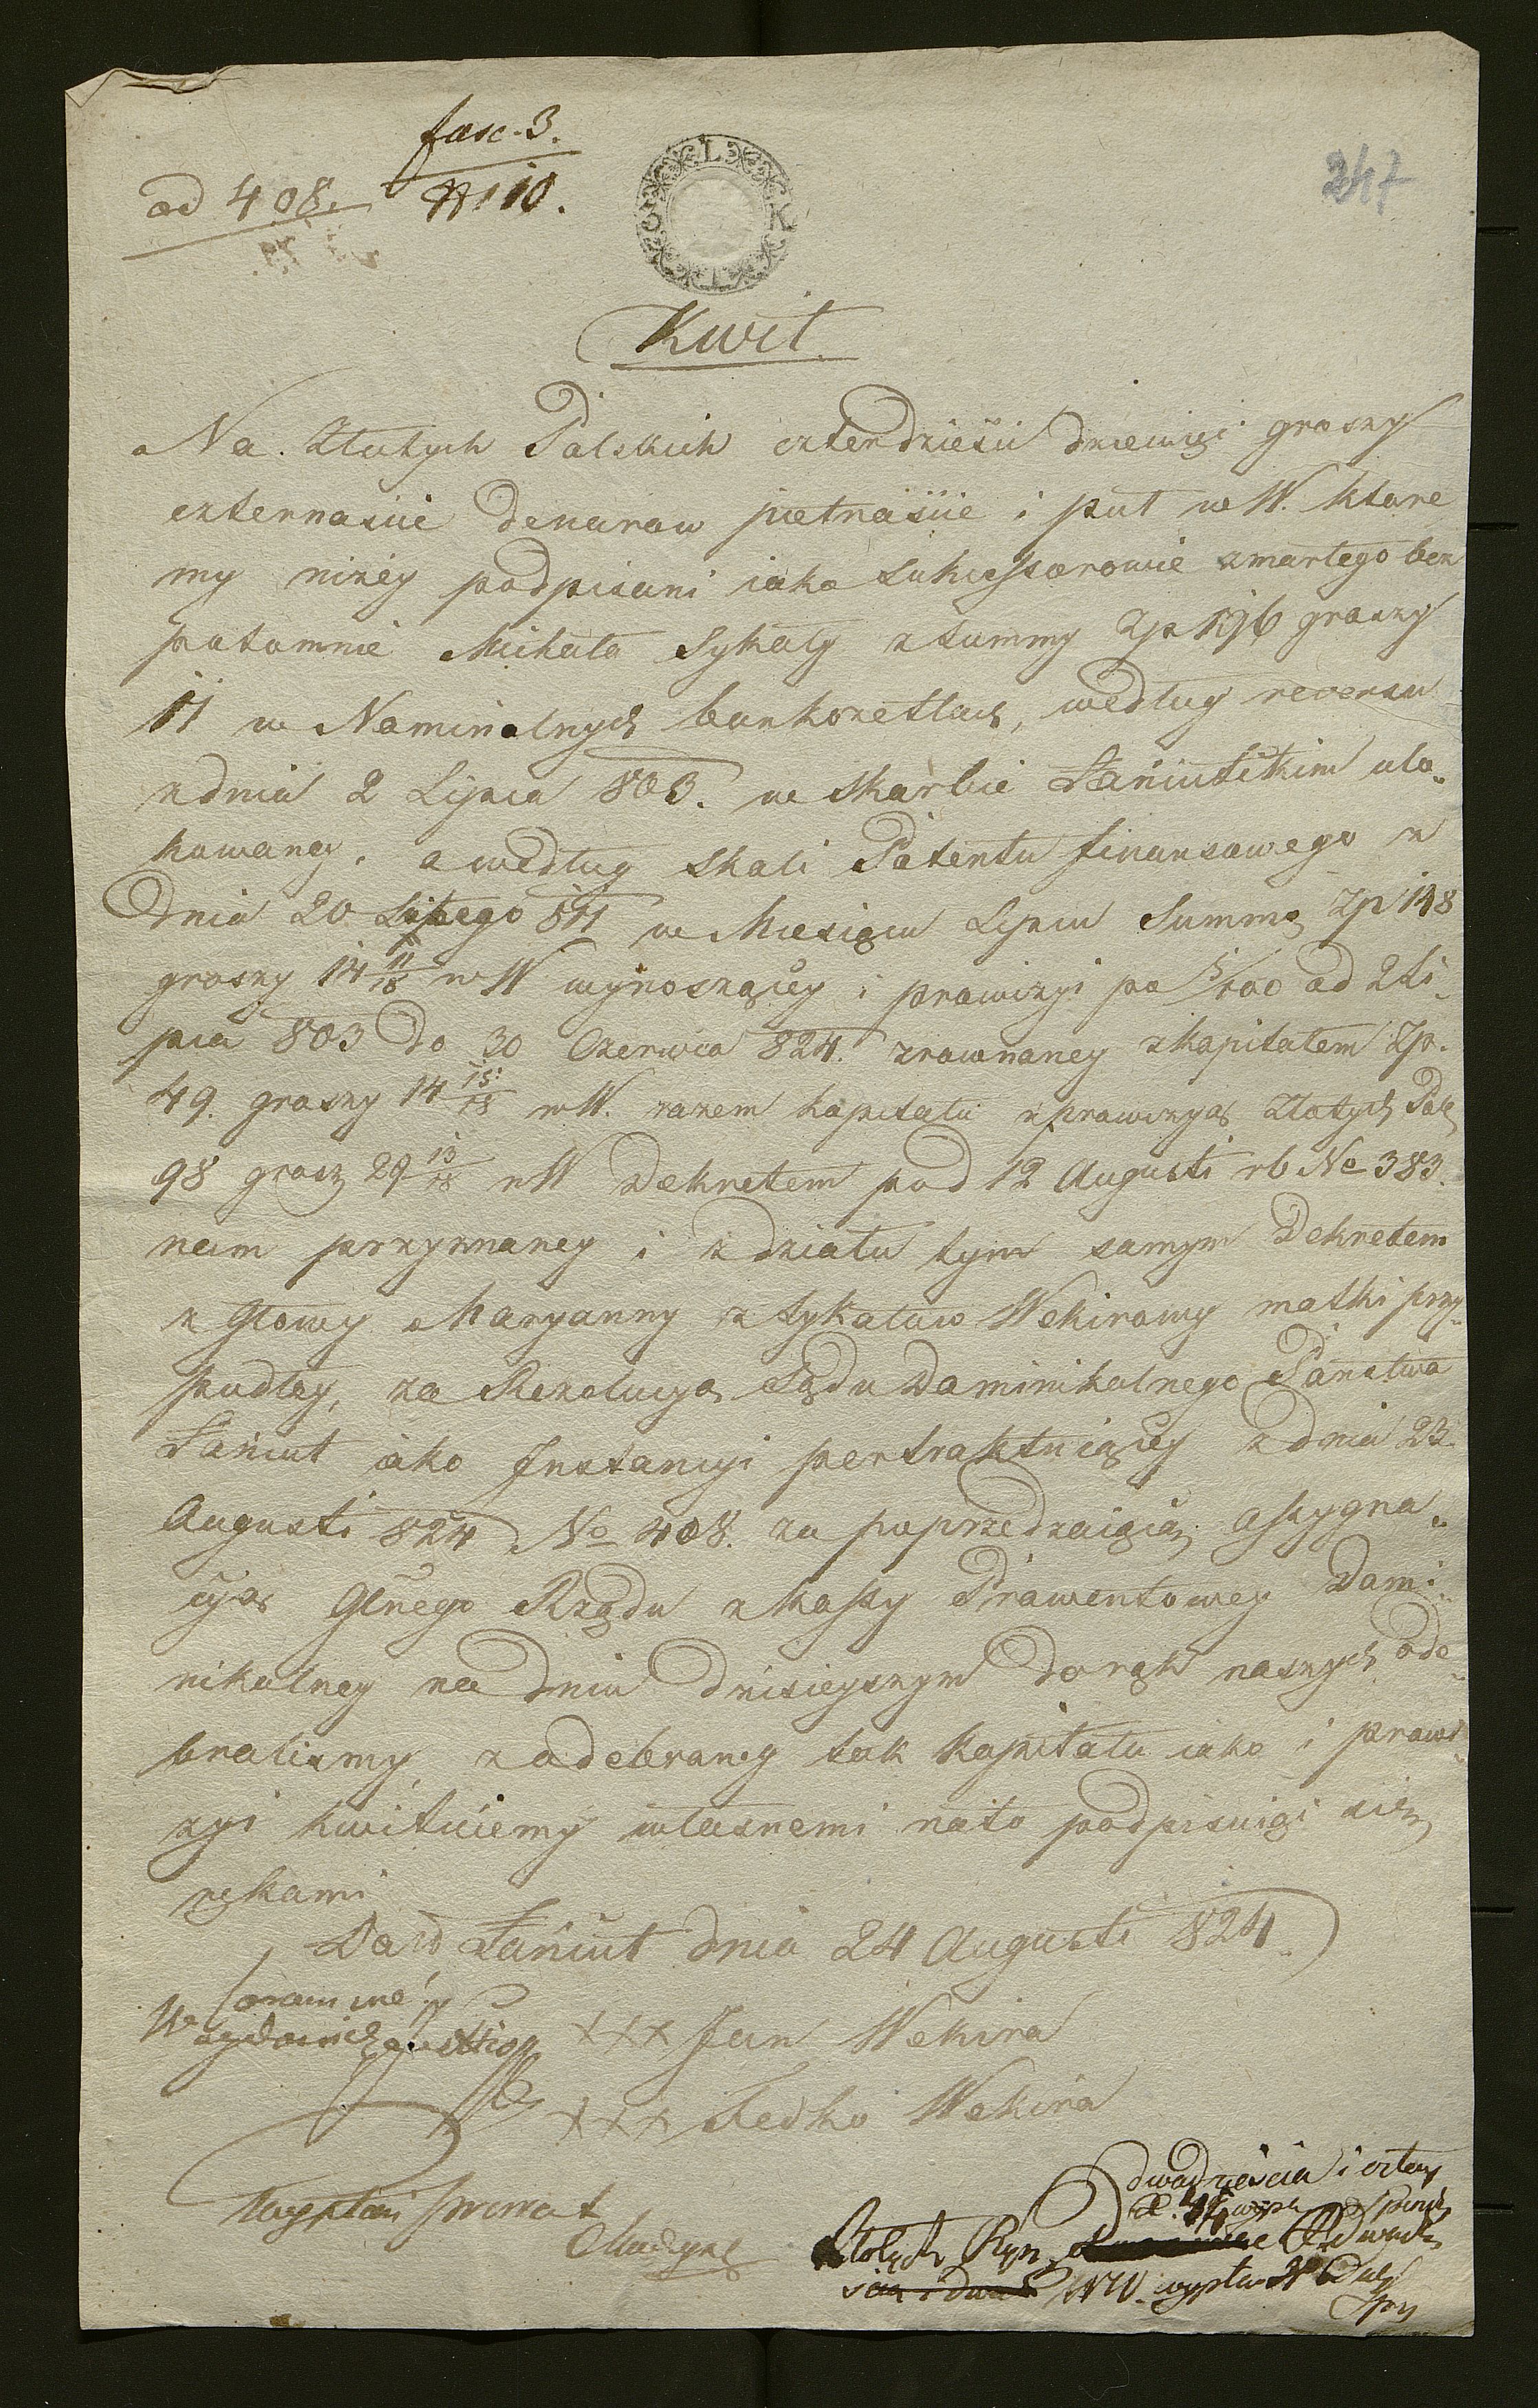 fasc. 3.
ad 408. N 110.
247
Kwit
Na. Złotych Polskich czterdzieści dziewięć groszy
czternaście denarow pietnaście i puł wW. ktore
my niżey podpisani iako Sukcessorowie zmarłego bez
potomnie Michała Sykały z Summy Zp 196 groszy
11 w Nominalnych bankozetlach, według rewersu
z dnia 2 Lipca 803. w Skarbie Łańcutskim ulo„
kowaney, a według Skali Patentu finansowego z
dnia 20 Lutego 811 w Miesiącu Lipcu Summę Zp 148
groszy 14 11/18 wW wynoszącey i prowizyi po 5/100 od 2 Li„
pca 803 do 30 Czerwca 824. zrownaney z kapitałem Zp.
49. groszy 14 15/18 wW. razem kapitału z prowizyą Złotych Pol
98 groszy 29 13/18 wW Dekretem pod 12 Augusti rb No 383.
nam przyznaney i z działu tym samym Dekretem
z Głowy Maryanny z Sykałow Wekirowy matki przy„
padłey, za Rezolucyą Sądu Dominikalnego Państwa
Łańcut iako Instancyi pertraktuiącey z dnia 23
Augusti 824 No 408. za poprzedzaiącą assygna„
cyą Głnego Rządu z kassy Prowentowey Domi„
nikalney na dniu dzisieyszym do rąk naszych ode„
braliśmy, z odebraney tak kapitału iako i prowi„
zyi kwituiemy własnemi na to podpisuiąc się
rękami
Dato Łańcut dnia 24 Augusti 824
Coram me
xxx Jan Wekira
xxx Fedko Wekira
dwadzieścia i cztery
Złotych Ryn.
WW. wypła